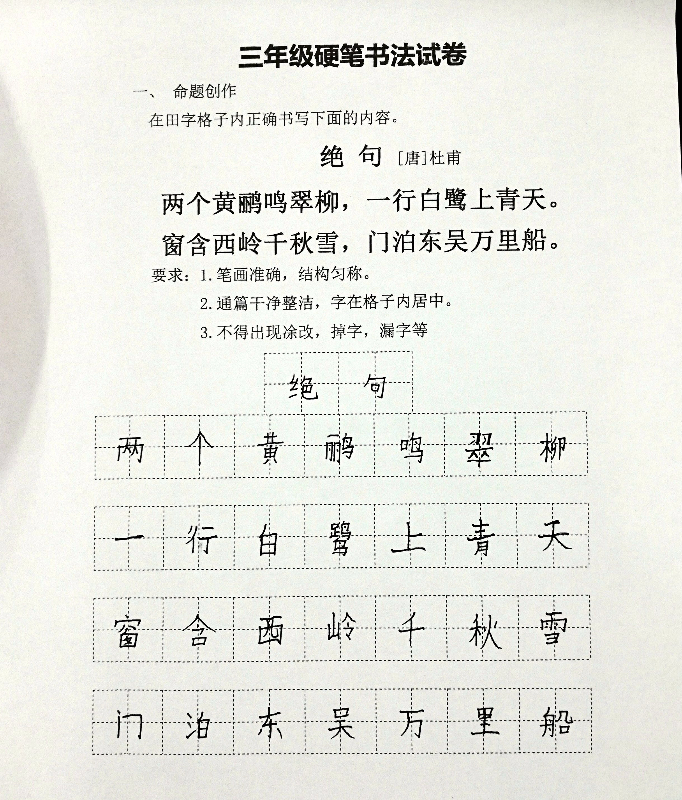 三年级硬笔书法试卷
一、 命题创作
在田字格子内正确书写下面的内容。
绝 句 [唐]杜甫
两个黄鹂鸣翠柳，一行白鹭上青天。
窗含西岭千秋雪，门泊东吴万里船。
要求：1.笔画准确，结构匀称。
2.通篇干净整洁，字在格子内居中。
3.不得出现涂改，掉字，漏字等
绝 句
两 个 黄 鹂 鸣 翠 柳
一 行 白 鹭 上 青 天
窗 含 西 岭 千 秋 雪
门 泊 东 吴 万 里 船